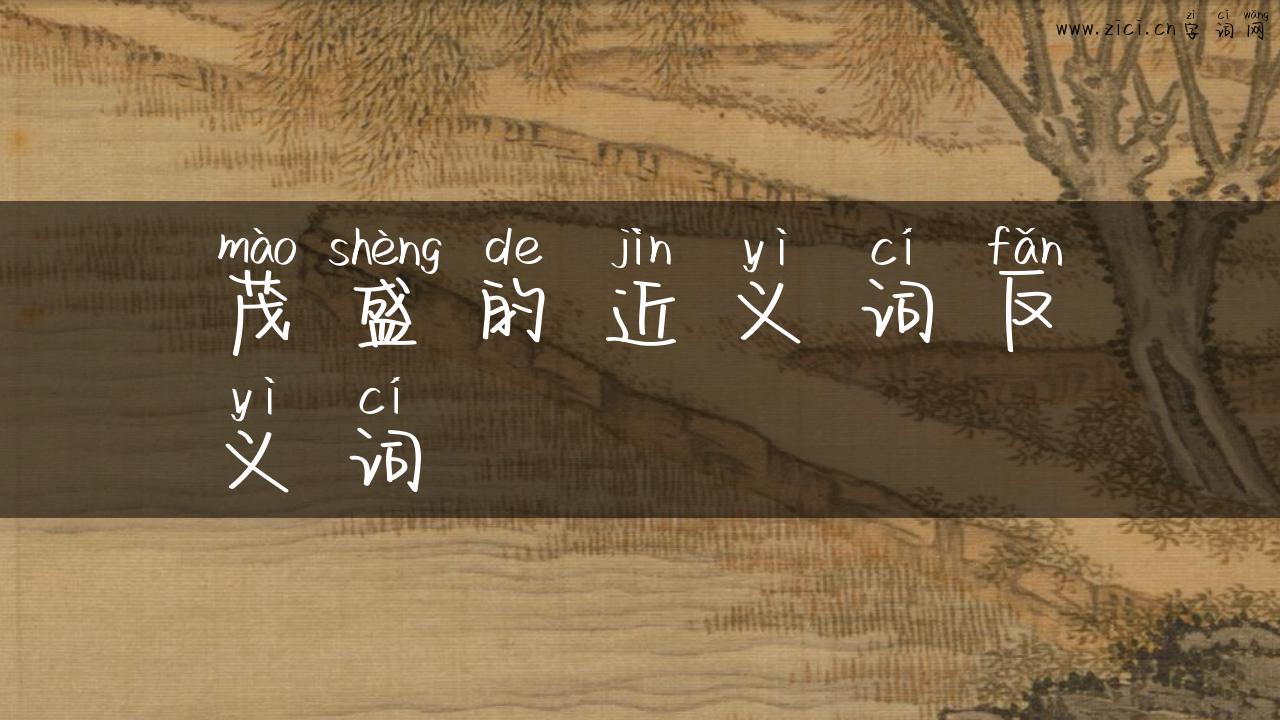 zì cí wǎng
www.zici.cn字词网
mào shèng de jìn yì cí fǎn
茂盛的近义词反
yì cí
义词